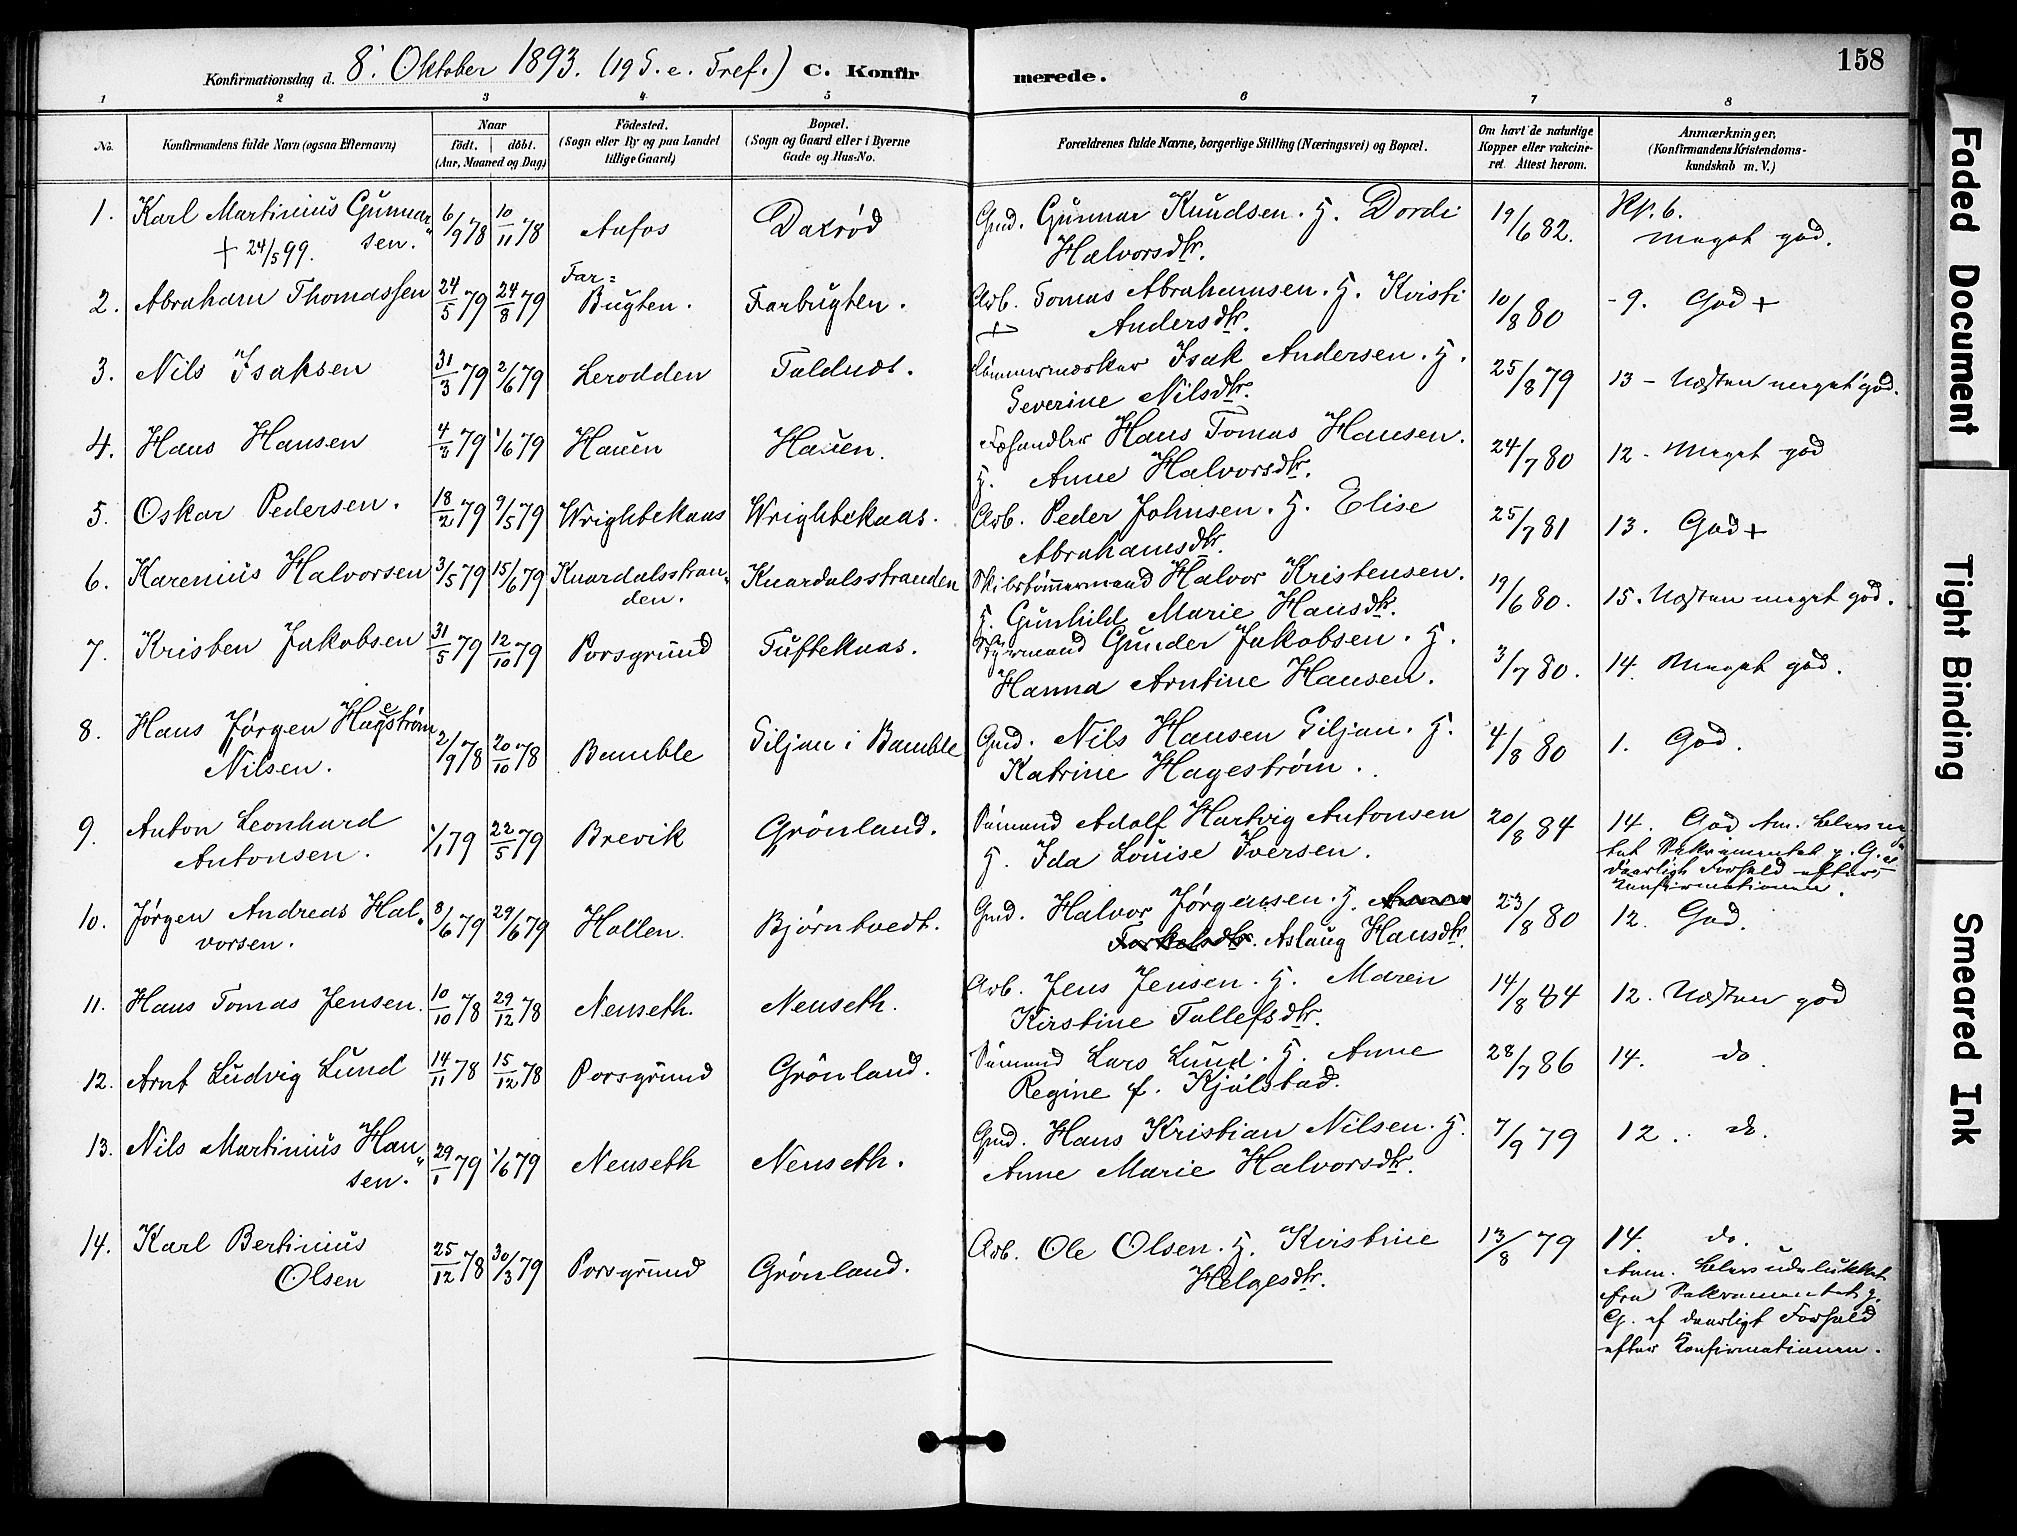 158
Konfirmationsdag d. 8. Oktober 1893. (19 S. e. Tref.) C. Konfirmerede.
1 2 3 4 5 6 7 8
No. Konfirmandens fulde Navn (ogsaa Efternavn) Naar født. døbt. (Aar, Maaned og Dag) Födested. (Sogn eller By og paa Landet tillige Gaard) Bopæl. (Sogn og Gaard eller i Byerne Gade og Hus-No. Forældrenes fulde Navne, borgerlige Stilling (Næringsvei) og Bopæl. Om havt de naturlige Kopper eller vakcineret. Attest herom. Anmærkninger. (Konfirmandens Kristendomskundskab m. V.)
1. Karl Martinius Gunnar 6/9 78 10/11 78 Aafos Daxrød Gmd. Gunnar Knudsen. H. Dordi 19/6 82. Kp. 6.
+ 24/5 99. sen. Halvorsdtr. meget god.
2. Abraham Thomassen 24/5 79 24/8 79 Far=Bugten. Farbugten. Arb. Tomas Abrahamsen. H. Kristi 10/8 80 - 9. God +
+ Andersdtr.
3. Nils Isaksen 31/3 79 2/6 79 Lerodden Taldnæs. Tømmermærker Isak Andersen. H. 25/8 79 13 - Næsten meget god.
Severine Nilsdtr.
4. Hans Hansen 4/3 79 1/6 79 Hauen Hauen. Fæhandler Hans Tomas Hansen. 24/7 80 12 - Meget god
H. Anne Halvorsdtr.
5. Oskar Pedersen. 18/2 79 9/5 79 Wrightekaas Wrightekaas. Arb. Peder Johnsen. H. Elise 25/7 81 13. God +
Abrahamsdtr.
6. Karenius Halvorsen 3/5 79 15/6 79 Knardalsstranden. Knardalsstranden Skibstømmermand Halvor Kristensen. 19/6 80. 15. Næsten meget god.
H. Gunhild Marie Hansdtr.
7. Kristen Jakobsen 31/5 79 12/10 79 Porsgrund Tuftekaas. Styrmand Gunder Jakobsen. H. 3/7 80. 14. Meget god.
Hanna Arntine Hansen.
8. Hans Jørgen Hagestrøm 2/9 78 20/10 78 Bamble Siljan i Bamble Gmd. Nils Hansen Siljan. H. 4/8 80 1. God.
Nilsen. Katrine Hagestrøm.
9. Anton Leonhard 1/1 79 22/5 79 Brevik Grönland. Sømand Adolf Hartvig Antonsen 20/8 84 14. God Am. blev
Antonsen. H. Ida Louise Iversen. Sakramentet p. G. af
daarligt Forhold efter
Konfirmationen.
10. Jørgen Andreas Hal- 8/6 79 29/6 79 Hollen. Bjørntvedt. Gmd. Halvor Jørgensen. H. 23/8 80 12. God.
vorsen. Aslaug Hansdtr.
11. Hans Tomas Jensen. 10/10 78 29/12 78 Nenseth. Nenseth. Arb. Jens Jensen. H. Maren 14/8 84 12. Næsten god
Kirstine Tallefsdtr.
12. Arnt Ludvig Lund 14/11 78 15/12 78 Porsgrund Grönland. Sømand Lars Lund. H. Anne 28/7 86 14. do
Regine f. Kjølstad.
13. Nils Martinius Han- 29/1 79 1/6 79 Nenseth Nenseth. Gmd. Hans Kristian Nilsen. H. 7/9 79 12. do.
sen. Anne Marie Halvorsdtr.
14. Karl Bertinius 25/12 78 30/3 79 Porsgrund Grönland. Arb. Ole Olsen. H. Kristine 13/8 79 14. do.
Olsen Helgesdtr. Anm. blev udelukket
fra Sakramentet p.
G. af daarligt Forhold
efter Konfirmationen.
Faded Document
Tight Binding
Smeared Ink